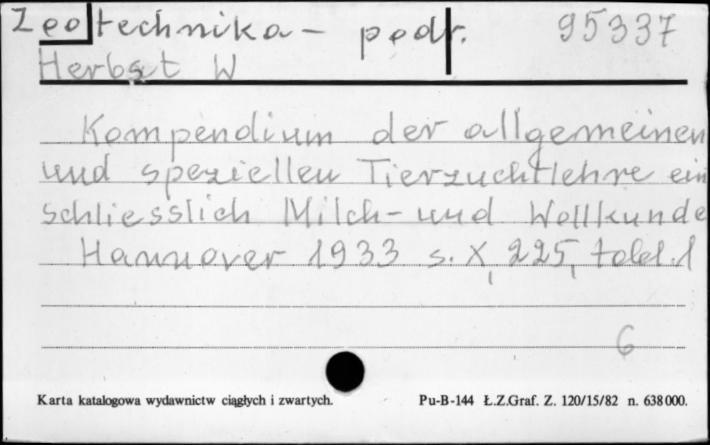 Zootechnika - podr. 95337
Herbst W
Kompendium der allgemeinen
und speziellen Tierzuchtlehre ein
schliesslich Milch- und Wollkunde
Hannover 1933 s. X, 225, tabl. 1
6
Karta katalogowa wydawnictw ciągłych i zwartych. Pu-B-144 Ł.Z.Graf. Z. 120/15/82 n. 638000.